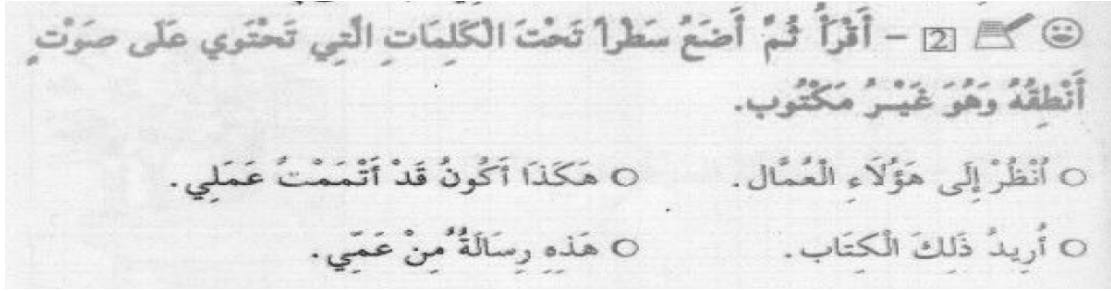 2 - أَقْرَأُ ثُمَّ أَضَعُ سَطْراً تَحْتَ الْكَلِمَاتِ الَّتِي تَحْتَوِي عَلَى صَوْتٍ
أَنْطِقُهُ وَهُوَ غَيْرُ مَكْتُوب.
○ اُنْظُرْ إِلَى هَؤُلَاءِ الْعُمَّال. ○ هَكَذَا أَكُونُ قَدْ أَتْمَمْتُ عَمَلِي.
○ أُرِيدُ ذَلِكَ الْكِتَاب. ○ هَذِهِ رِسَالَةٌ مِنْ عَمِّي.